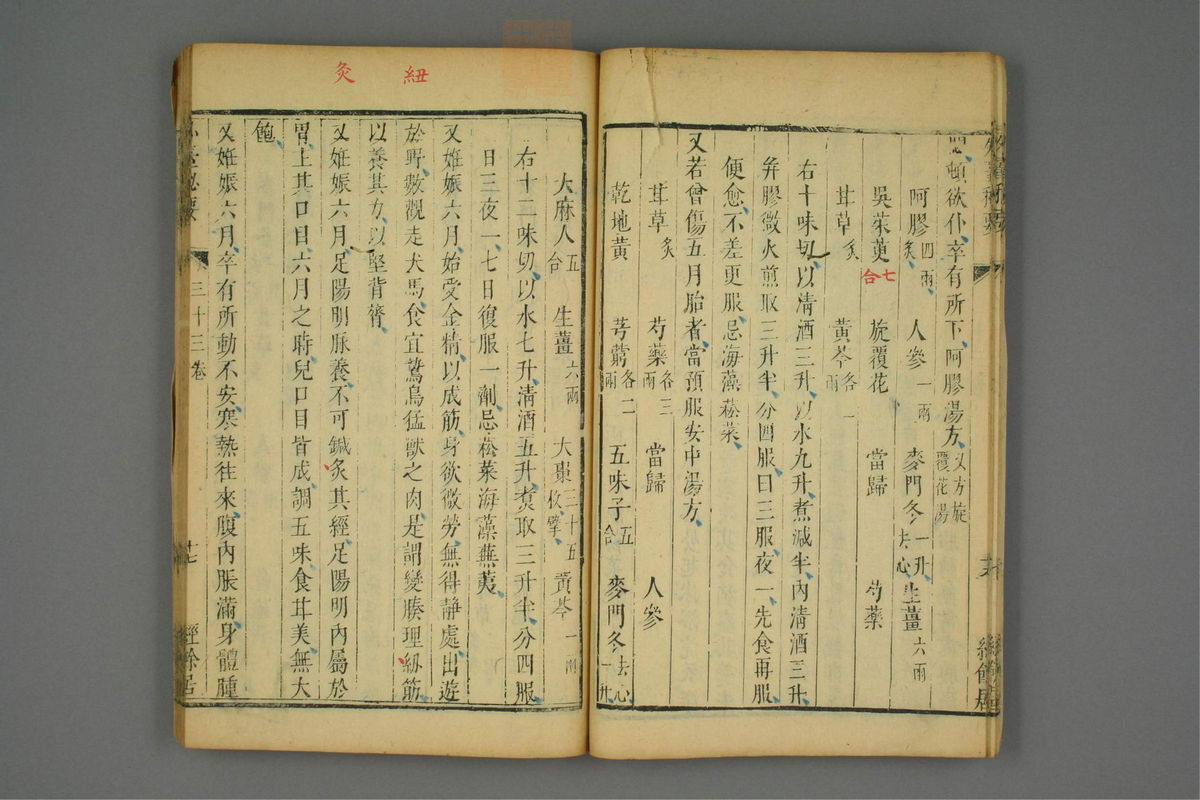 頓欲仆卒有所下阿膠湯方又方旋覆花湯
阿膠四兩炙 人參一兩 麥門冬一升去心 生薑六兩
吳茱萸七合 旋覆花 當歸 芍藥
甘草炙 黃芩各一兩
右十味切以清酒三升以水九升煮減半內清酒三升
并膠微火煎取三升半分四服日三服夜一先食再服
便愈不差更服忌海藻菘菜
又若曾傷五月胎者當預服安中湯方
甘草炙 芍藥各三兩 當歸 人參
乾地黃 芎藭各二兩 五味子五合 麥門冬去心一升
外臺秘要
經餘居
紐
灸
大麻人五合 生薑六兩 大棗三十五枚擘 黃芩一兩
右十二味切以水七升清酒五升煑取三升半分四服
日三夜一七日復服一劑忌菘菜海藻蕪荑
又姙娠六月始受金精以成筋身欲微勞無得靜處出遊
於野數觀走犬馬食宜鷙鳥猛獸之肉是謂變腠理紉筋
以養其力以堅背膂
又姙娠六月足陽明脉養不可鍼灸其經足陽明內屬於
胃上其口目六月之時兒口目皆成調五味食甘美無大
飽
又姙娠六月卒有所動不安寒熱往來腹內脹滿身體腫
外臺秘要
三十三卷
十七
經餘居